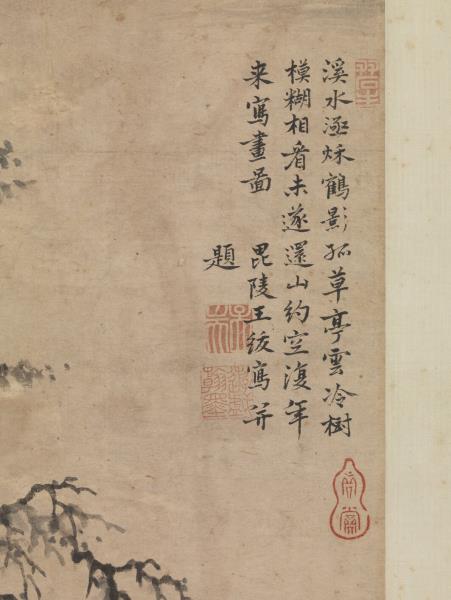 溪水涵秌鶴影孤草亭雲冷樹
模糊相看未遂還山約空復年
来寫畫圖　毘陵王紱寫并
題